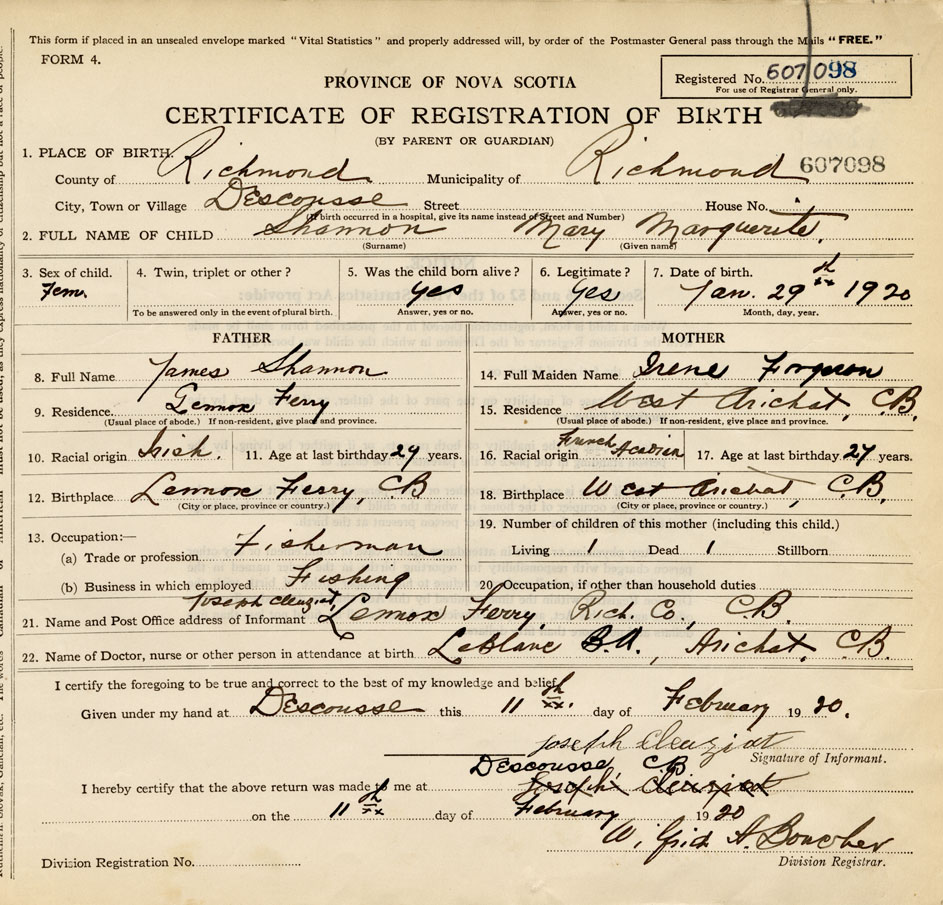 This form if placed in an unsealed envelope marked "Vital Statistics" and properly addressed will, by order of the Postmaster General pass through the Mails "FREE."
FORM 4.
Registered No. 607098
For use of Registrar General only.
PROVINCE OF NOVA SCOTIA
CERTIFICATE OF REGISTRATION OF BIRTH
(BY PARENT OR GUARDIAN)
607098
1. PLACE OF BIRTH.
County of Richmond Municipality of Richmond
City, Town or Village Descousse Street House No.
(If birth occurred in a hospital, give its name instead of Street and Number)
2. FULL NAME OF CHILD Shannon Mary Marguerite.
(Surname) (Given name)
3. Sex of child. 4. Twin, triplet or other? 5. Was the child born alive? 6. Legitimate? 7. Date of birth.
Fem. Yes Yes Jan. 29th 1920
To be answered only in the event of plural birth. Answer, yes or no. Answer, yes or no. Month, day, year.
FATHER MOTHER
8. Full Name James Shannon
9. Residence. Lennox Ferry
(Usual place of abode.) If non-resident, give place and province.
10. Racial origin Irish. 11. Age at last birthday 29 years.
12. Birthplace Lennox Ferry, CB
(City or place, province or country.)
13. Occupation:—
(a) Trade or profession. Fisherman
(b) Business in which employed Fishing
14. Full Maiden Name Irene Forgeron
15. Residence West Arichat, C.B.
(Usual place of abode.) If non-resident, give place and province.
16. Racial origin French Acadian 17. Age at last birthday 27 years.
18. Birthplace West Arichat, C.B.
(City or place, province or country.)
19. Number of children of this mother (including this child.)
Living 1 Dead 1 Stillborn
20. Occupation, if other than household duties
Joseph Cleuziat,
21. Name and Post Office address of Informant Lennox Ferry, Rich. Co., C.B.
22. Name of Doctor, nurse or other person in attendance at birth LeBlanc B.A., Arichat, CB.
I certify the foregoing to be true and correct to the best of my knowledge and belief.
Given under my hand at Descousse this 11th. day of February 1920.
Joseph Cleuziat
Signature of Informant.
Descousse CB
I hereby certify that the above return was made to me at Joseph Cleuziat
on the 11th day of February 1920
A. Boucher
Division Registrar.
Division Registration No.